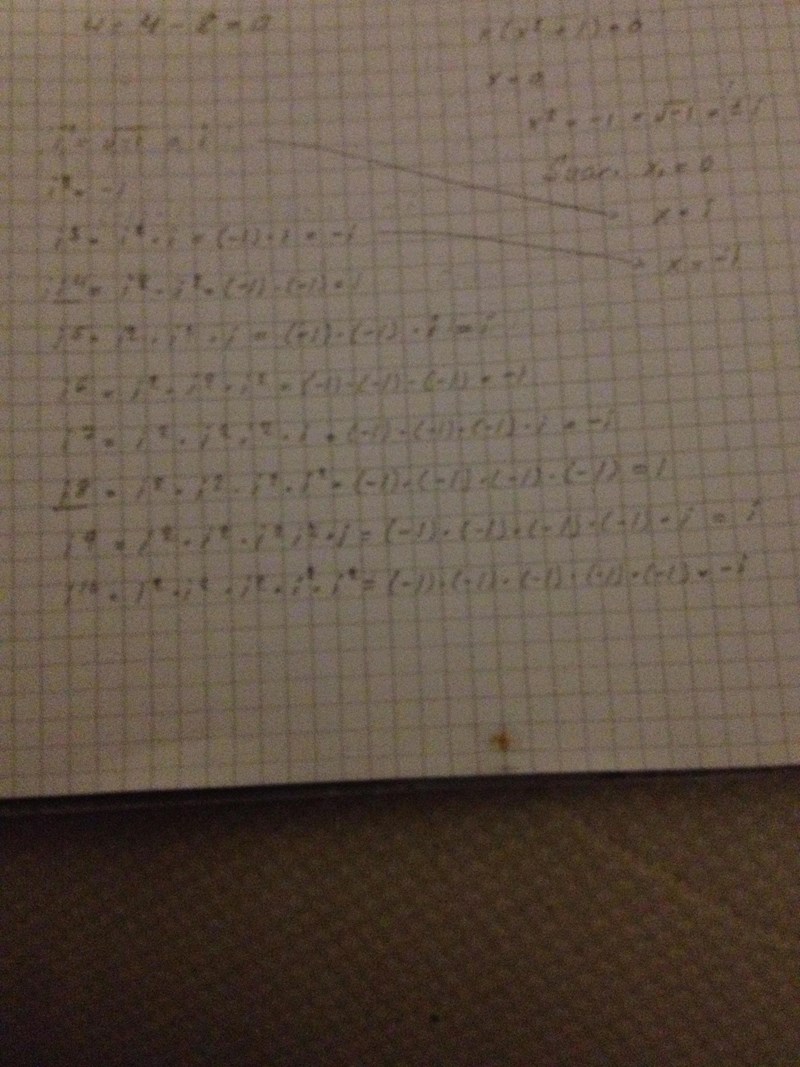 4 = 4 - 8 = 0
x(x² + 1) = 0
x = 0
x² = -1 = √-1 = ± i
Svar: x₁ = 0
x = i
x = -i
i = √-1 = i
i² = -1
i³ = i² · i = (-1) · i = -i
i⁴ = i² · i² = (-1) · (-1) = 1
i⁵ = i² · i² · i = (-1) · (-1) · i = i
i⁶ = i² · i² · i² = (-1) · (-1) · (-1) = -1
i⁷ = i² · i² · i² · i = (-1) · (-1) · (-1) · i = -i
i⁸ = i² · i² · i² · i² = (-1) · (-1) · (-1) · (-1) = 1
i⁹ = i² · i² · i² i² · i = (-1) · (-1) · (-1) · (-1) · i = i
i¹⁰ = i² · i² · i² · i² · i² = (-1) · (-1) · (-1) · (-1) · (-1) = -i